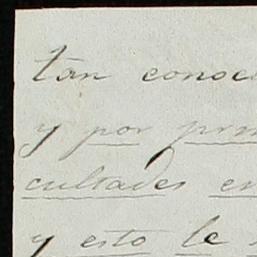 tan conoc
y por prin
cultades en
y esto le